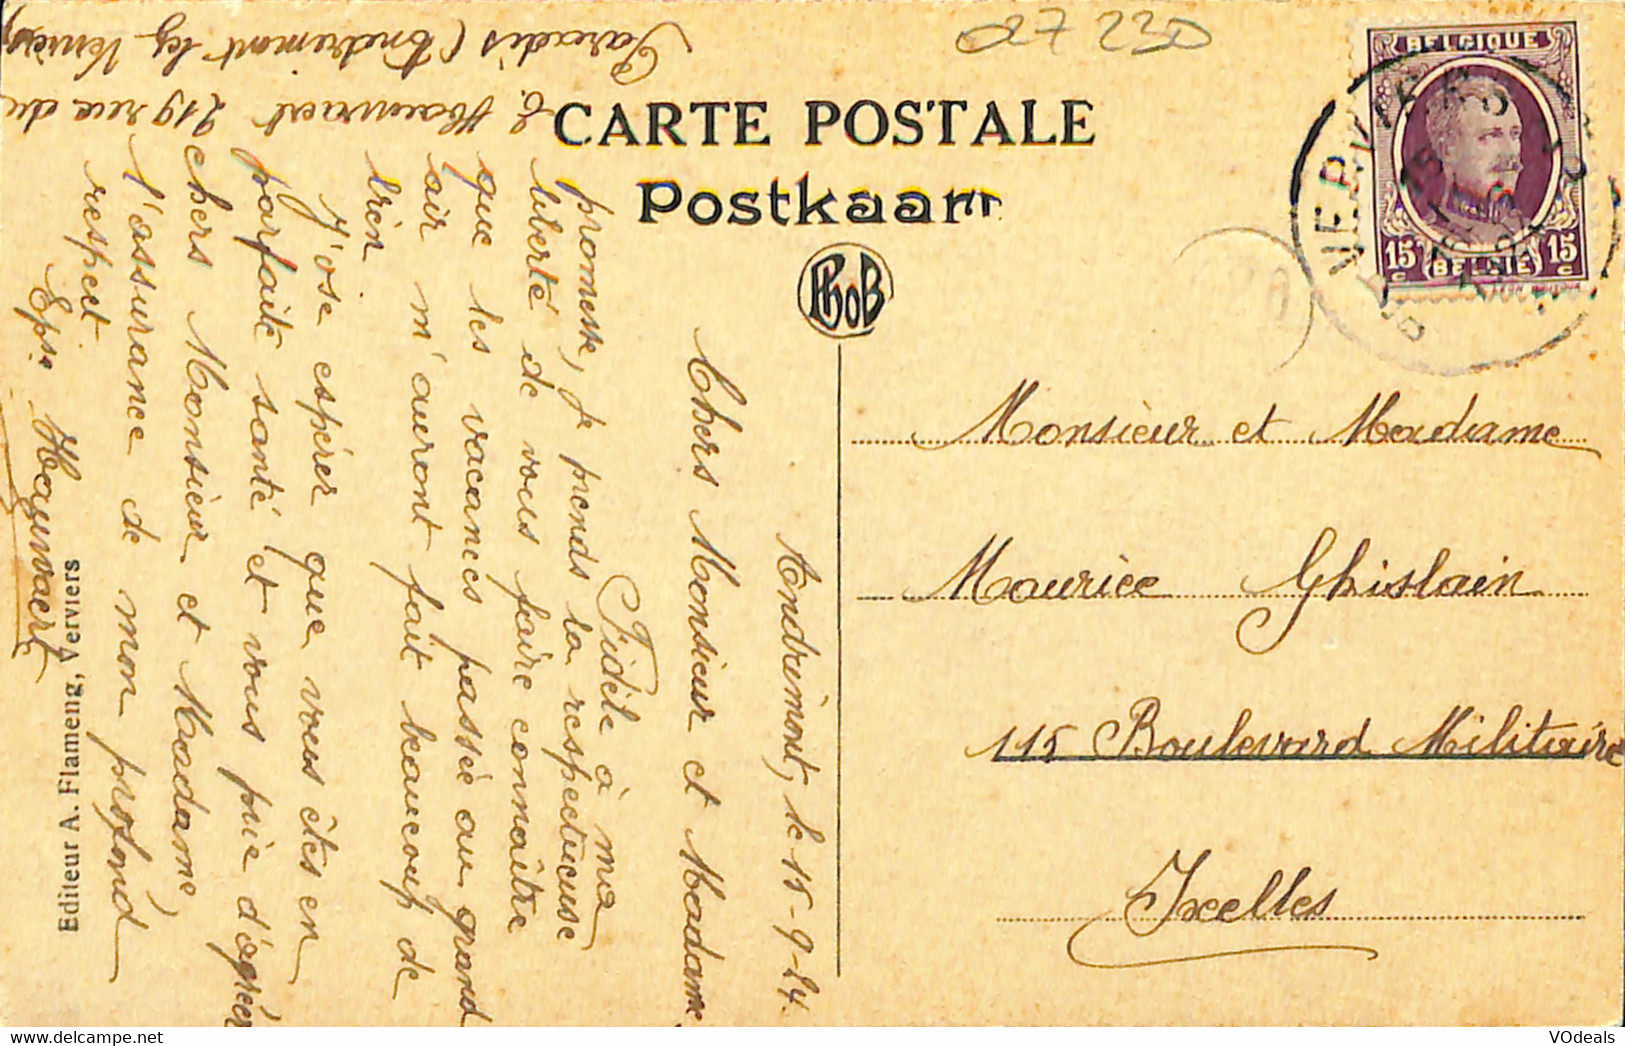 CARTE POSTALE
Postkaart
PhoB
027 230
BELGIQUE
15 c
15 c
BELGIE
VERVIERS
Andrimont, le 15-9-24.
Chers Monsieur et Madame,
Fidèle à ma
promesse, je prends la respectueuse
liberté de vous faire connaître
que les vacances passée au grand
air m'auront fait beaucoup de
bien
J'ose espérer que vous êtes en
parfaite santé et vous prie d'agréer
chers Monsieur et Madame,
l'assurance de mon profond
respect
Eps. Hauwaert
E. Hauwaert 219 rue du
Paradis (Andrimont lez Verviers)
Monsieur et Madame
Maurice Ghislain
115 Boulevard Militaire
Ixelles
Editeur A. Flameng, Verviers
VOdeals